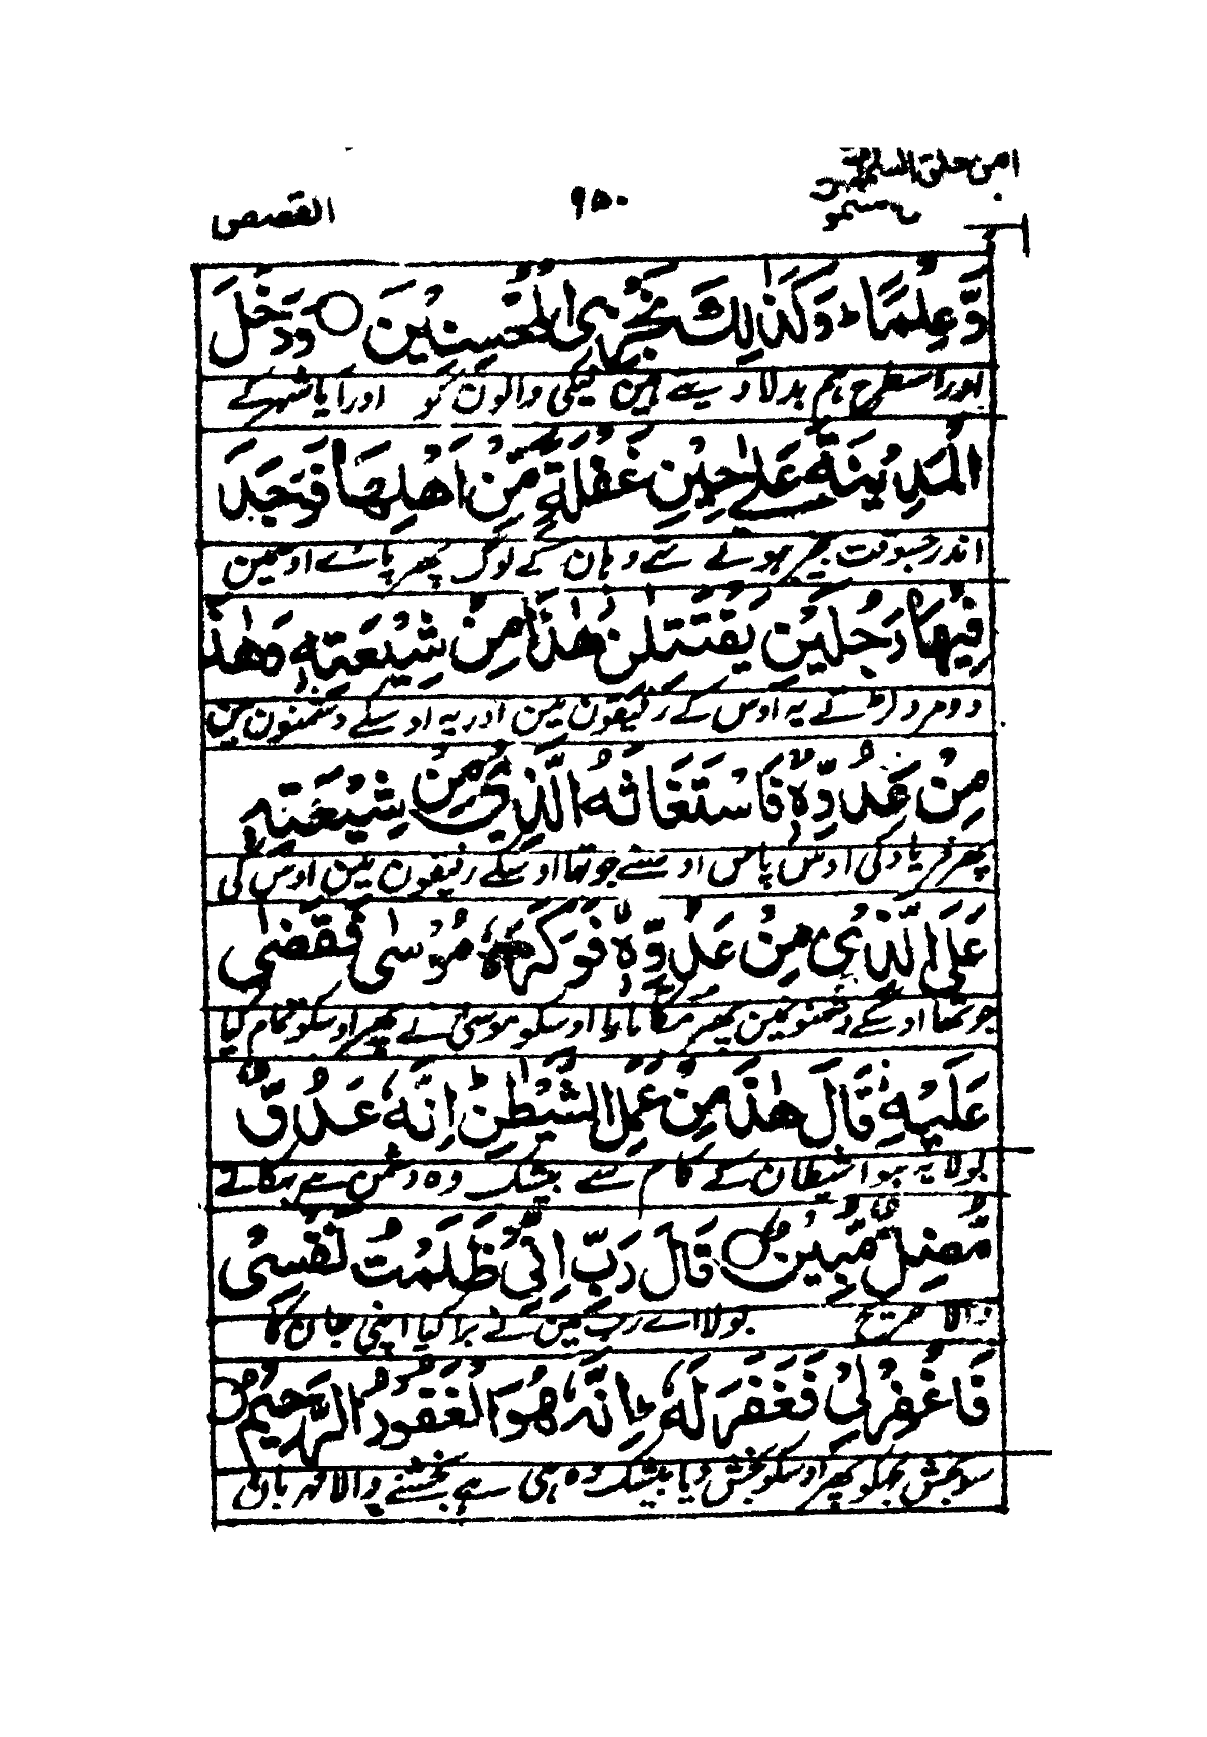 امن خلق السموت
۹۵۰
القصص
وَّعِلْمًا ؕ وَكَذٰلِكَ نَجْزِى الْمُحْسِنِيْنَ ○ وَدَخَلَ
اور اسطرح ہم بدلا دیتے ہین نیکی والون کو اور آیا شہر کے
الْمَدِيْنَةَ عَلٰى حِيْنِ غَفْلَةٍ مِّنْ اَهْلِهَا فَوَجَدَ
اندر جسوقت بیخبر ہوئے تھے وہان کے لوگ پھر پائے اوسمین
فِيْهَا رَجُلَيْنِ يَقْتَتِلٰنِ هٰذَا مِنْ شِيْعَتِهٖ وَهٰذَا
دو مرد لڑتے یہ اوس کے رفیقون مین اور یہ اوسکے دشمنون مین
مِنْ عَدُوِّهٖ ۚ فَاسْتَغَاثَهُ الَّذِىْ مِنْ شِيْعَتِهٖ
پھر فریاد کی اوس پاس اوسنے جو تھا اوسکے رفیقون مین اوس کی
عَلَى الَّذِىْ مِنْ عَدُوِّهٖ ۙ فَوَكَزَهٗ مُوْسٰى فَقَضٰى
جو تھا اوسکے دشمنونمین پھر مکا مارا اوسکو موسیٰ نے پھر اوسکو تمام کیا
عَلَيْهِ ۗ قَالَ هٰذَا مِنْ عَمَلِ الشَّيْطٰنِ ؕ اِنَّهٗ عَدُوٌّ
بولا یہ ہوا شیطان کے کام سے بیشک وہ دشمن ہے بہکانے
مُّضِلٌّ مُّبِيْنٌ ○ قَالَ رَبِّ اِنِّىْ ظَلَمْتُ نَفْسِىْ
والا صریح بولا اے رب مین نے برا کیا اپنی جان کا
فَاغْفِرْ لِىْ فَغَفَرَ لَهٗ ؕ اِنَّهٗ هُوَ الْغَفُوْرُ الرَّحِيْمُ ○
سو بخش مجکو پھر اوسکو بخش دیا بیشک وہ ہی ہے بخشنے والا مہربان